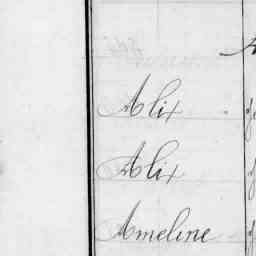 Alix
Alix
Ameline